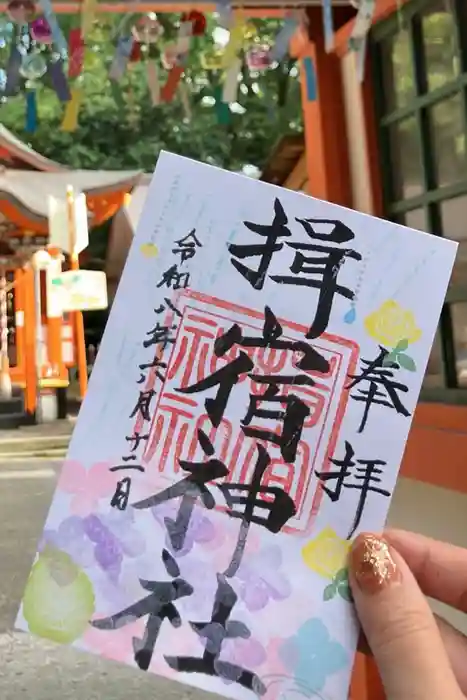 奉拝
揖宿神社
令和八年六月十二日